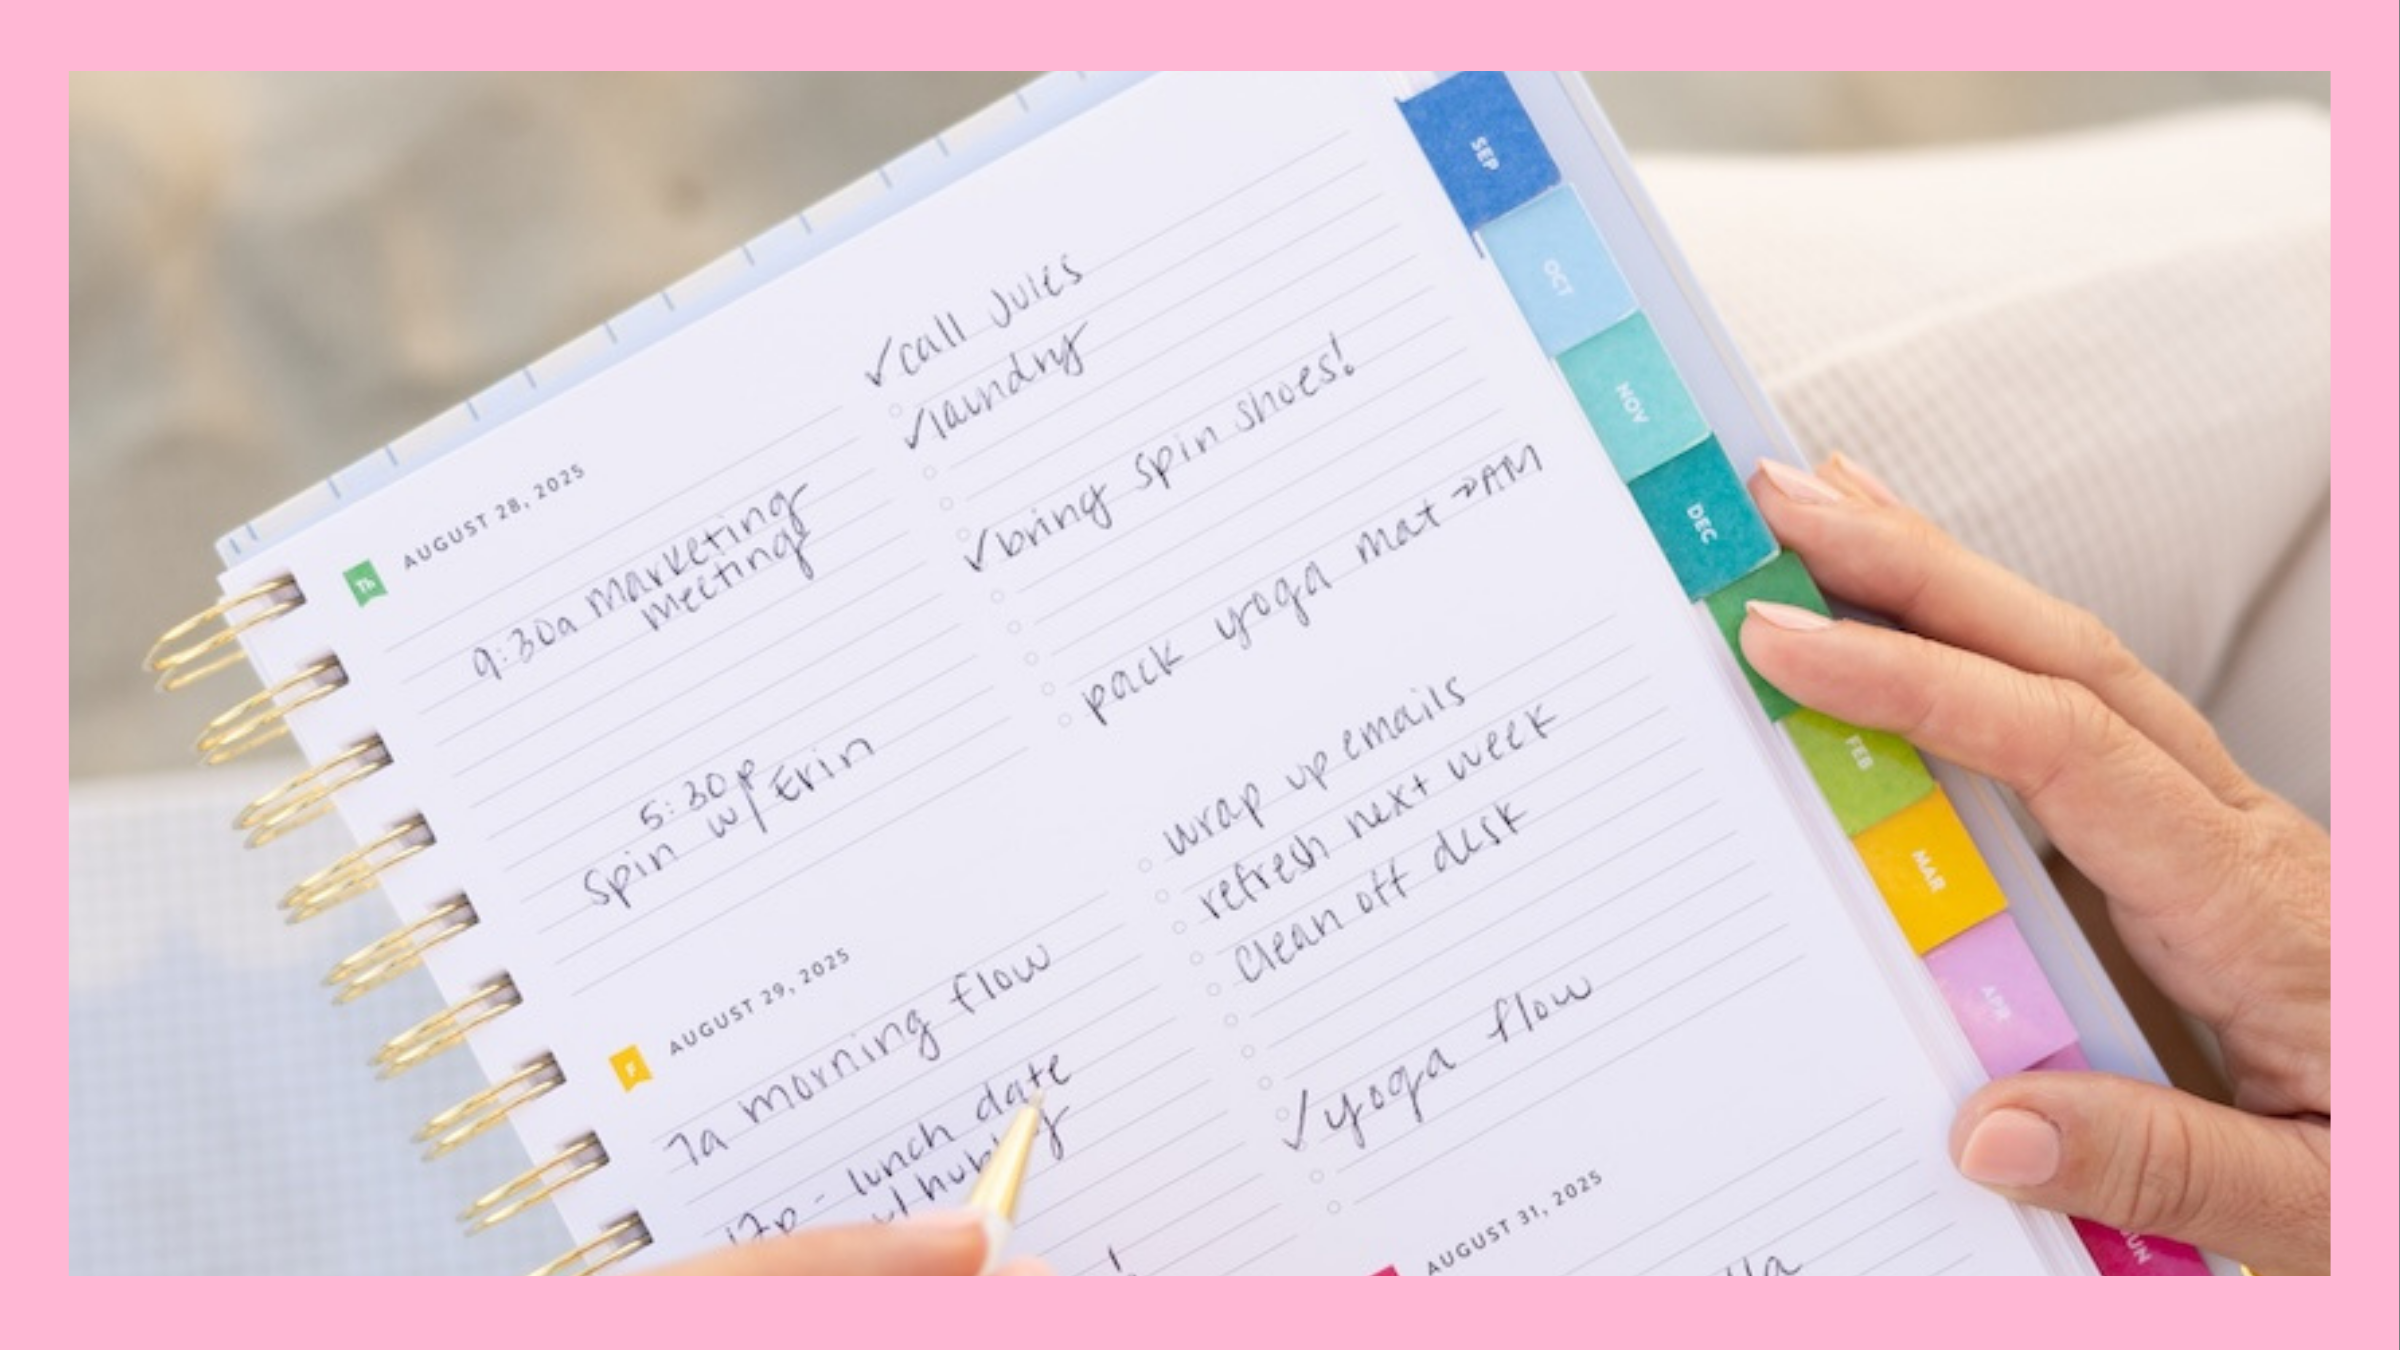 AUGUST 28, 2025
Th
9:30a marketing
meeting
5:30p
spin w/ Erin
✓call Jules
✓laundry
✓bring spin shoes!
pack yoga mat → AM
AUGUST 29, 2025
F
7a morning flow
12p - lunch date
w/ hubby
!
wrap up emails
refresh next week
clean off desk
✓yoga flow
AUGUST 31, 2025
SEP
OCT
NOV
DEC
FEB
MAR
APR
JUN